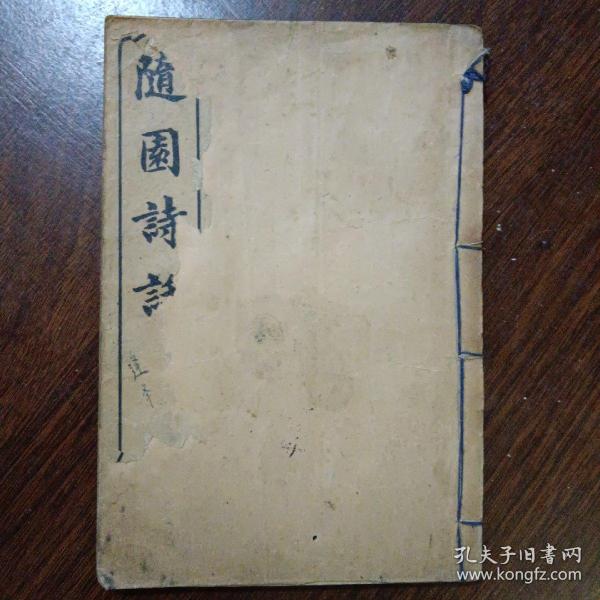 隨園詩話
孔夫子旧書网
www.kongfz.com